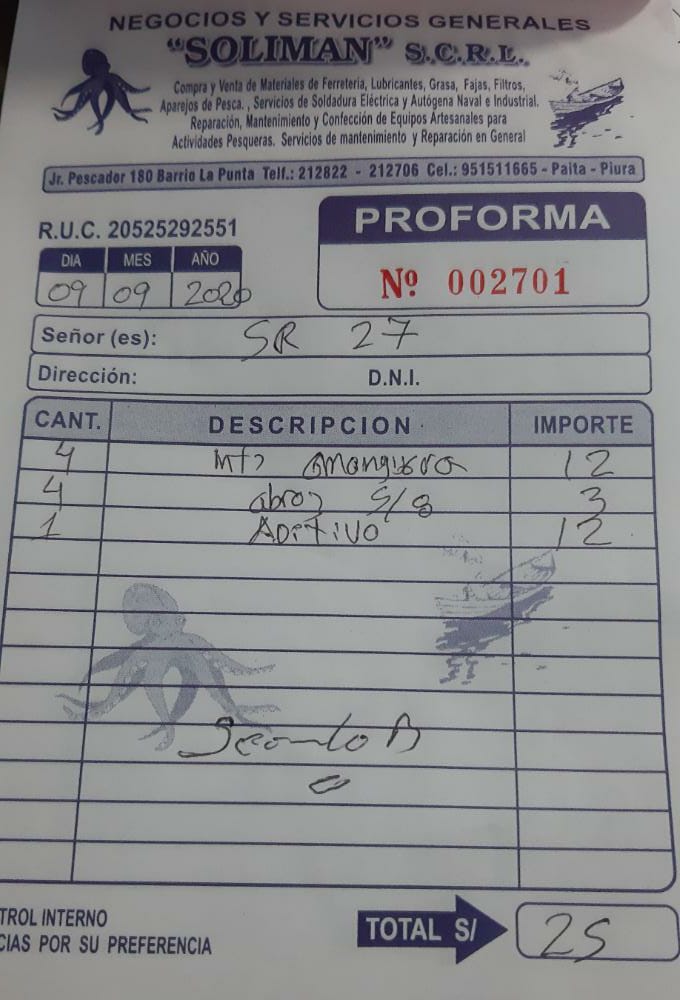 NEGOCIOS Y SERVICIOS GENERALES
"SOLIMAN" S.C.R.L.
Compra y Venta de Materiales de Ferreteria, Lubricantes, Grasa, Fajas, Filtros,
Aparejos de Pesca. , Servicios de Soldadura Eléctrica y Autógena Naval e Industrial.
Reparación, Mantenimiento y Confección de Equipos Artesanales para
Actividades Pesqueras. Servicios de mantenimiento y Reparación en General
Jr. Pescador 180 Barrio La Punta Telf.: 212822 - 212706 Cel.: 951511665 - Paita - Piura
R.U.C. 20525292551
PROFORMA
Nº 002701
DIA MES AÑO
09 09 2020
Señor (es): SR 27
Dirección: D.N.I.
CANT. DESCRIPCION IMPORTE
4 12
4 5/8 3
1 ADITIVO 12
TROL INTERNO
CIAS POR SU PREFERENCIA
TOTAL S/ 25